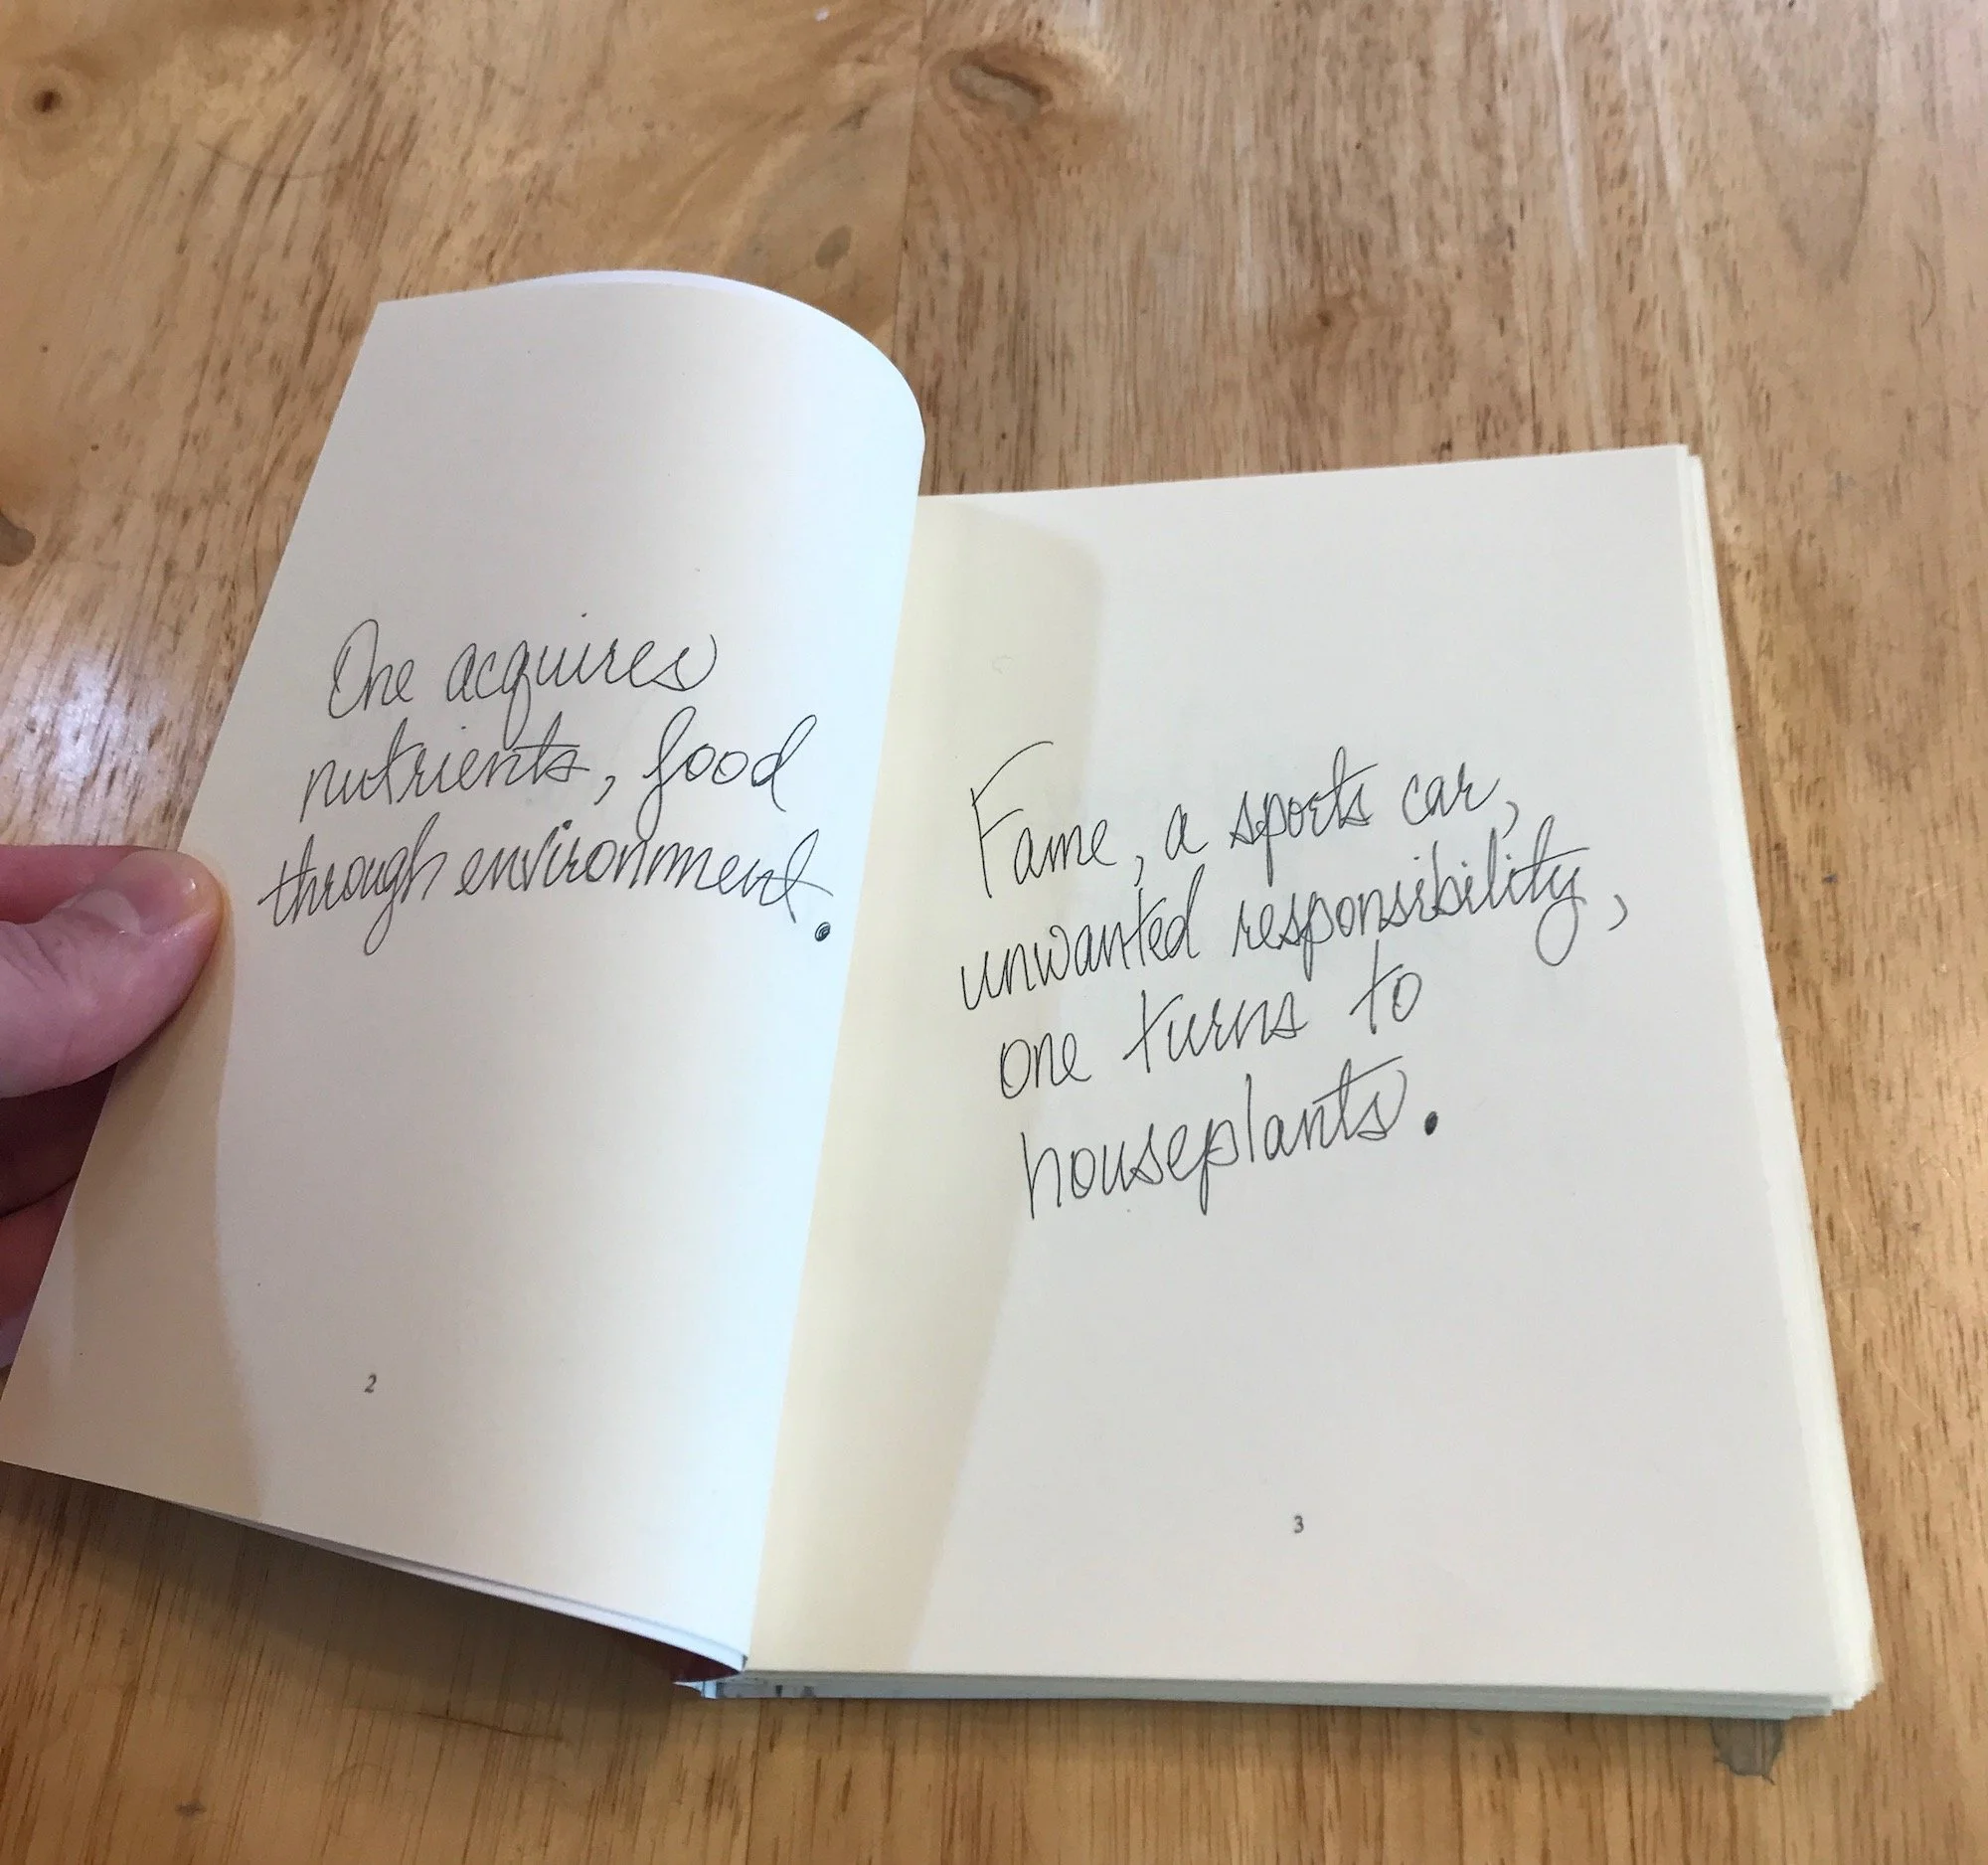 One acquires
nutrients, food
through environment.
2
Fame, a sports car,
unwanted responsibility,
one turns to
houseplants.
3